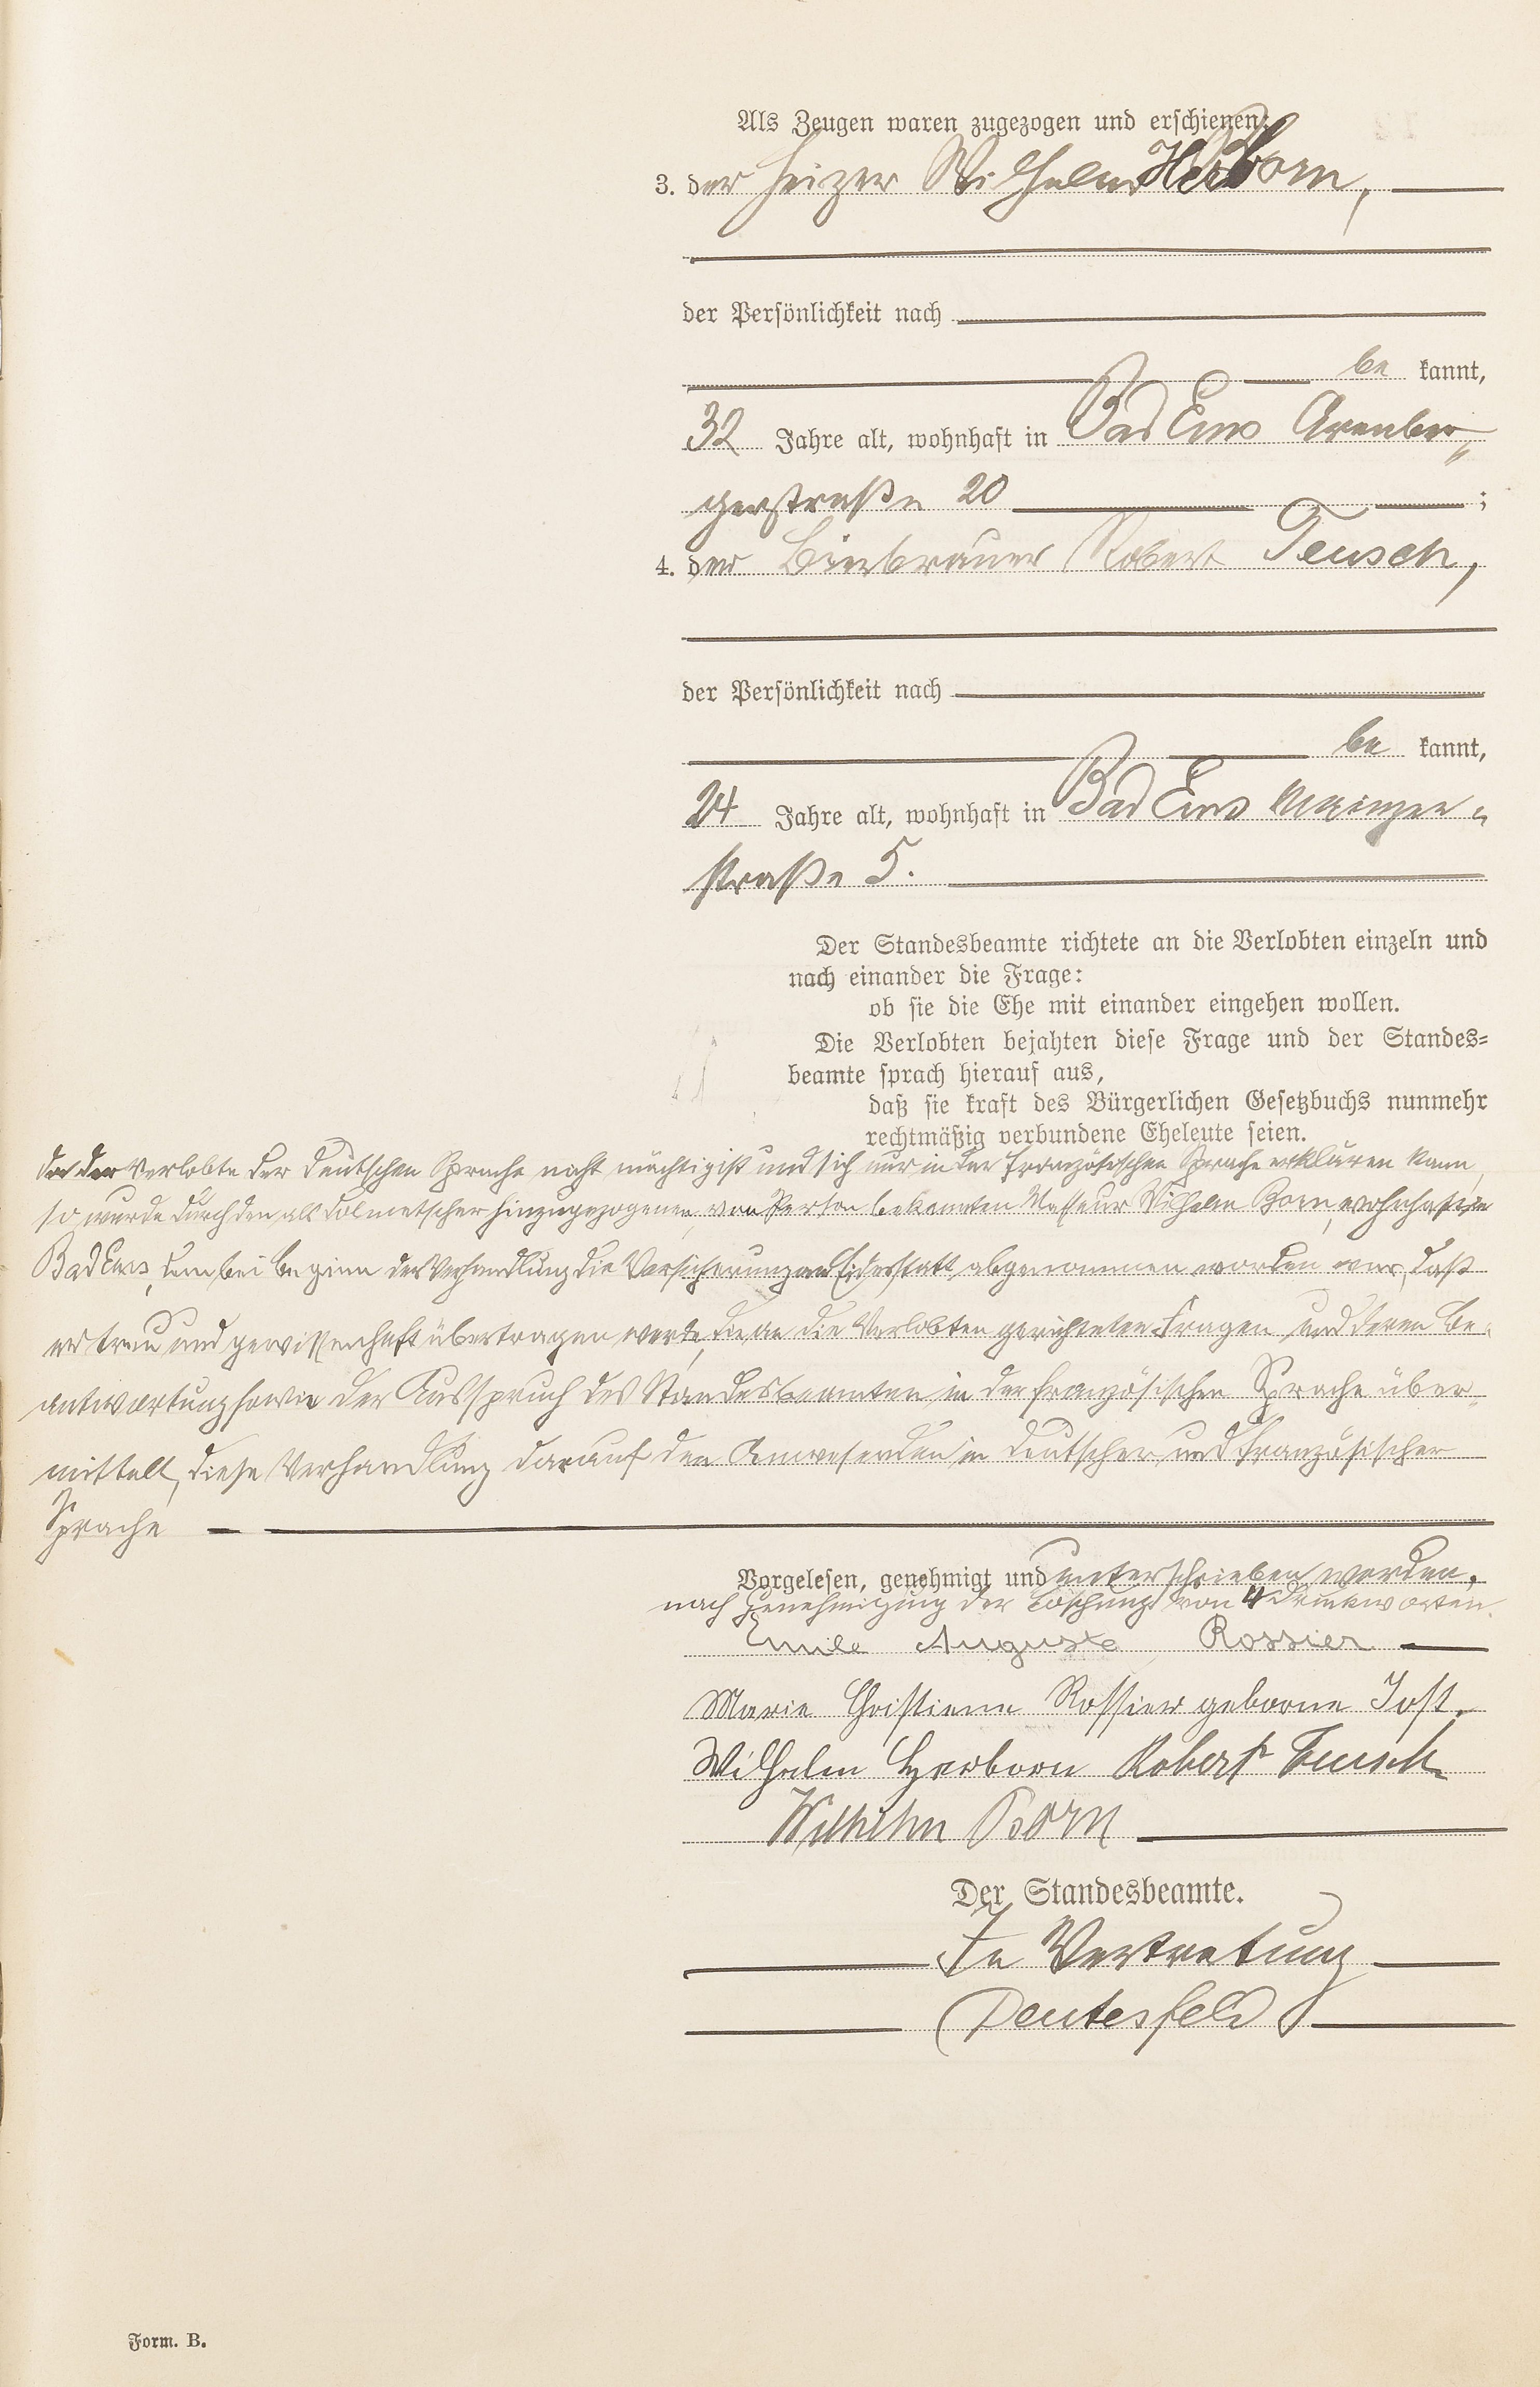 Als Zeugen waren zugezogen und erschienen:
3. der Heizer Wilhelm Herborn,
der Persönlichkeit nach
be kannt,
32 Jahre alt, wohnhaft in Bad Ems Arenber„
gerstraße 20 ;
4. der Bierbrauer Robert Teusch,
der Persönlichkeit nach
be kannt,
24 Jahre alt, wohnhaft in Bad Ems Mainzer„
straße 5.
Der Standesbeamte richtete an die Verlobten einzeln und
nach einander die Frage:
ob sie die Ehe mit einander eingehen wollen.
Die Verlobten bejahten diese Frage und der Standes=
beamte sprach hierauf aus,
daß sie kraft des Bürgerlichen Gesetzbuchs nunmehr
rechtmäßig verbundene Eheleute seien.
Da der Verlobte der deutschen Sprache nicht mächtig ist und sich nur in der französischen Sprache erklären kann,
so wurde durch den als Dolmetscher hinzugezogenen, von Person bekannten Masseur Wilhelm Born, wohnhaft in
Bad Ems, dem bei Beginn der Verhandlung die Versicherung an Eidesstatt abgenommen worden war, daß
er treu und gewissenhaft übertragen werde, die an die Verlobten gerichteten Fragen und deren Be„
antwortung sowie der Ausspruch des Standesbeamten in der französischen Sprache über„
mittelt, diese Verhandlung darauf den Anwesenden in deutscher und französischer
Sprache
Vorgelesen, genehmigt und unterschrieben worden,
nach Genehmigung der Löschung von 4 Druckworten.
Emile Auguste Rossier
Marie Christiene Rossier geborne Jost.
Wilhelm Herborn Robert Teusch
Wilhelm Born
Der Standesbeamte.
In Vertretung
Deutesfeld
Form. B.